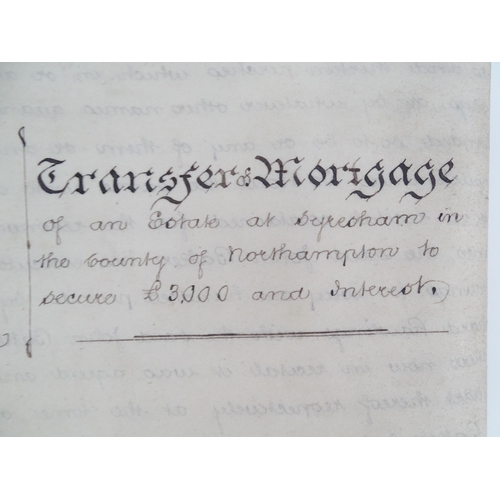 Transfer of Mortgage
of an Estate at Syresham in
the County of Northampton to
secure £3,000 and Interest.